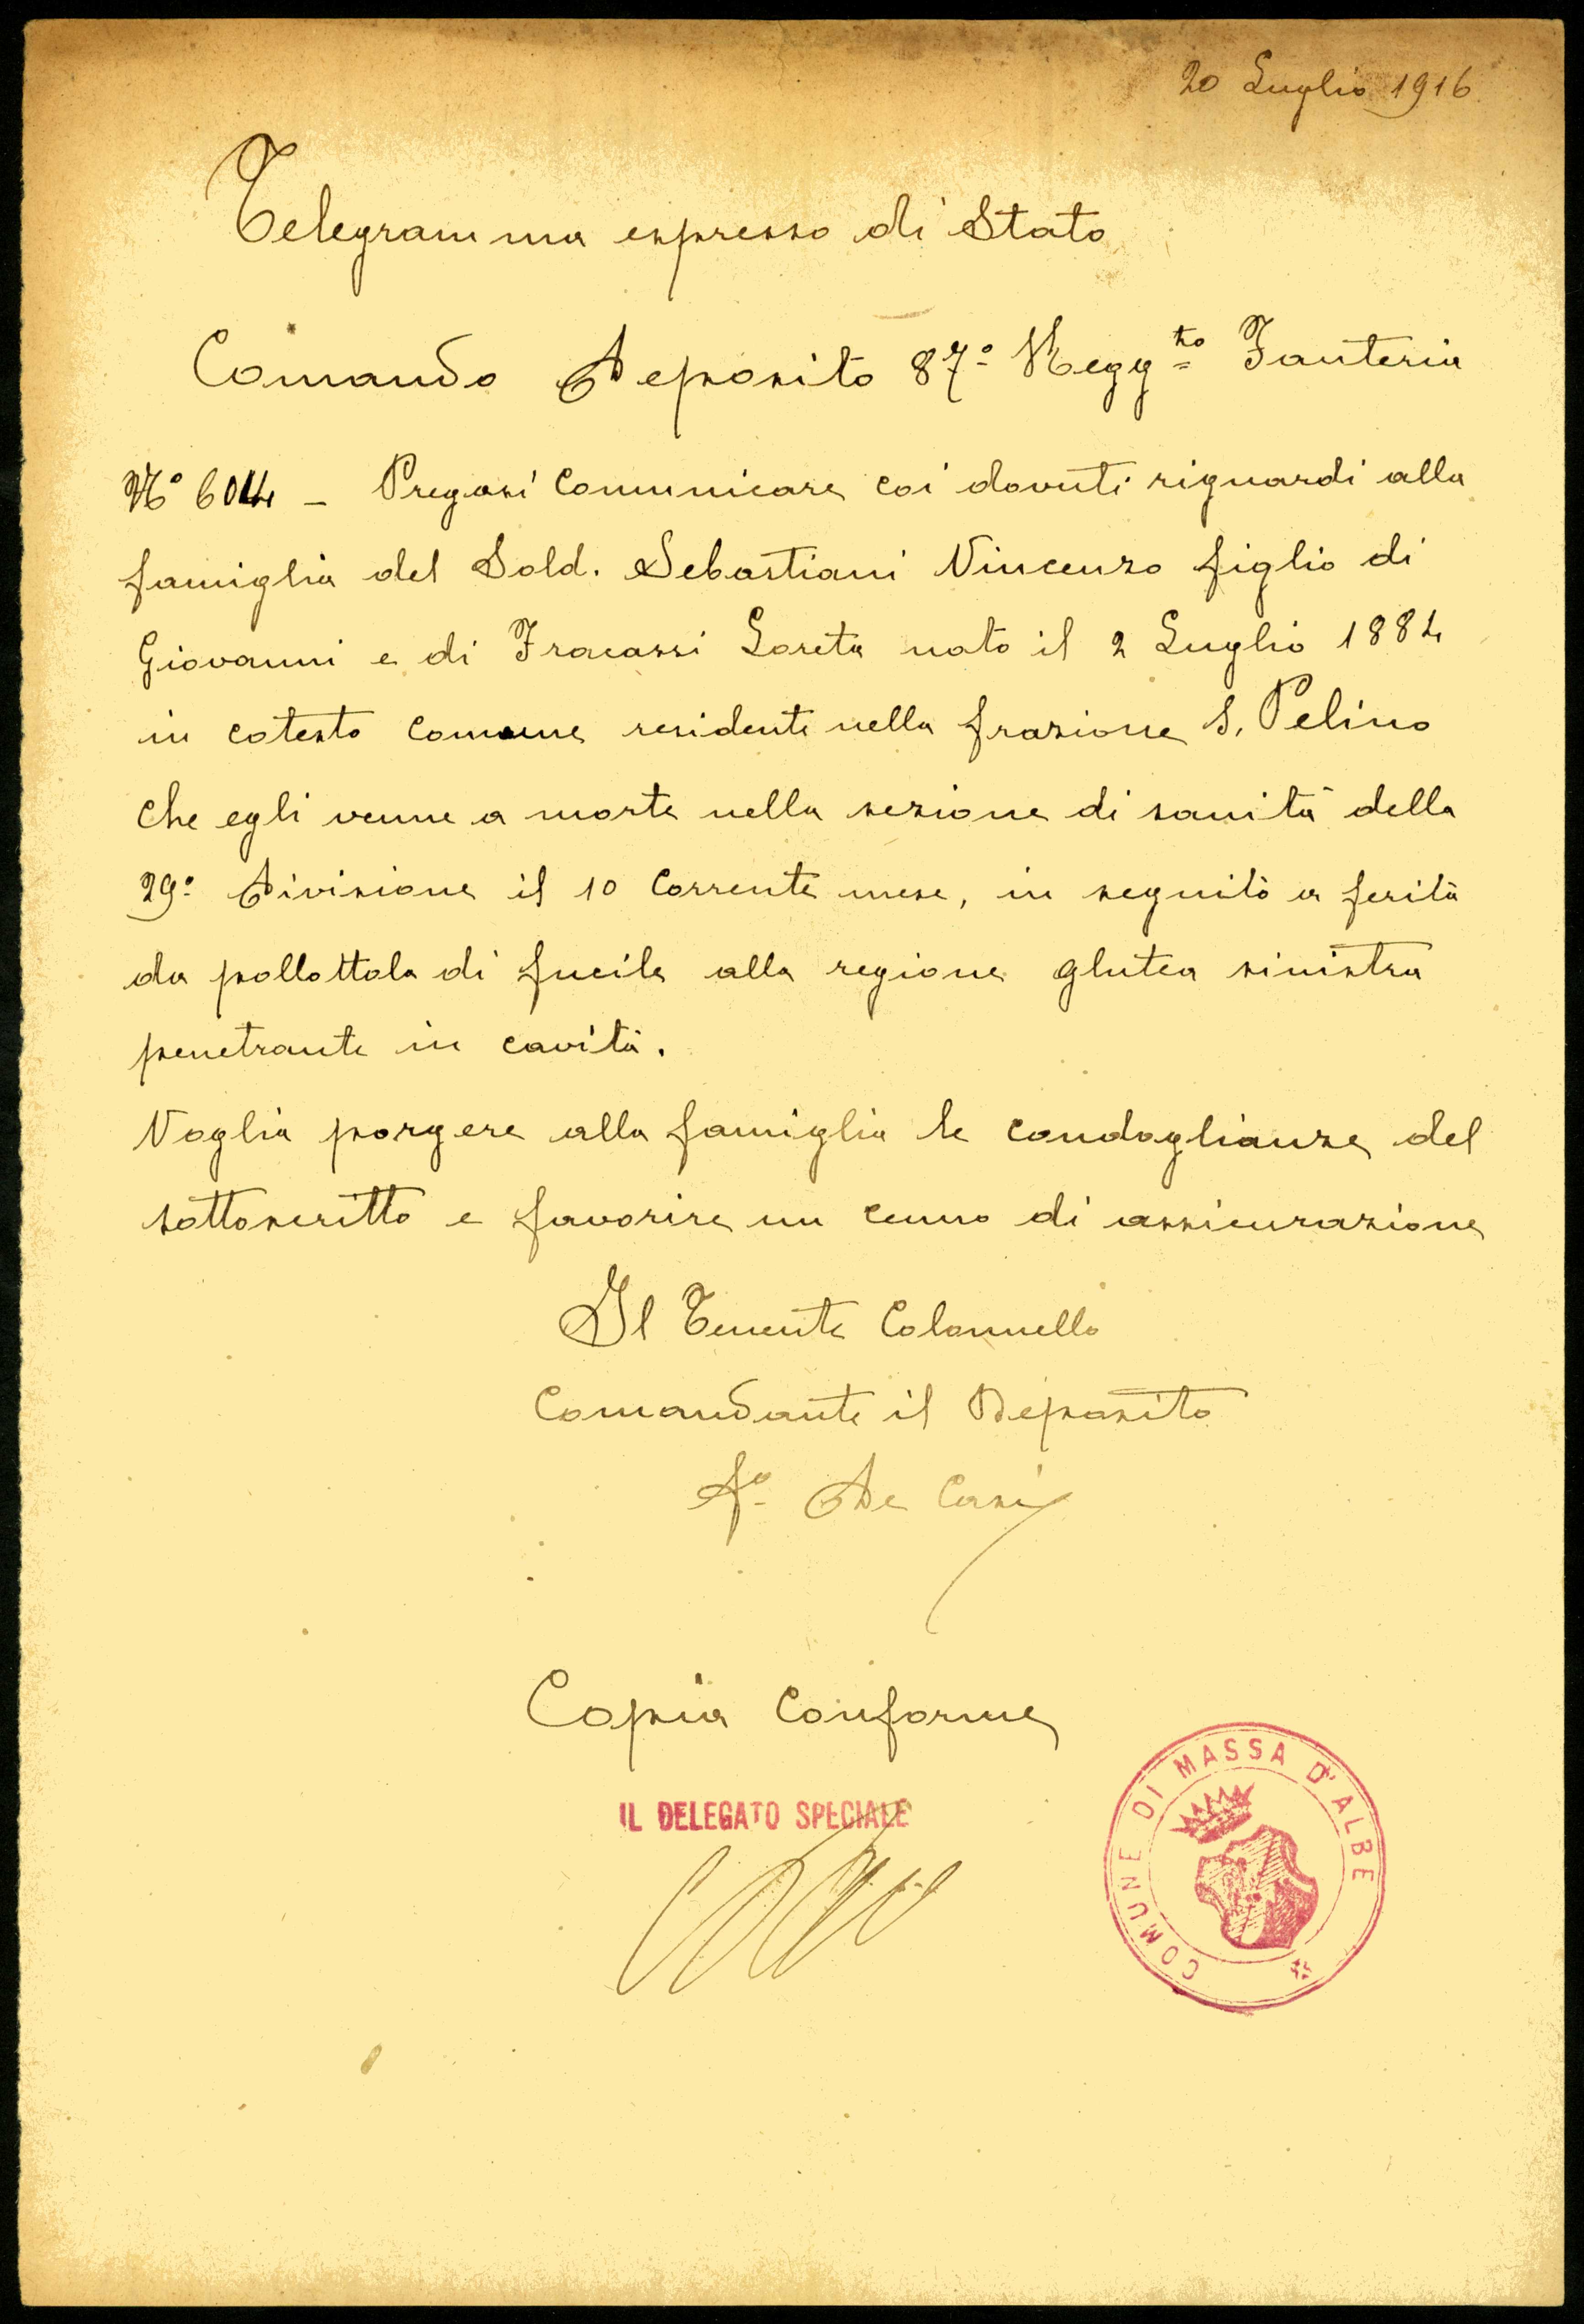 20 Luglio 1916
Telegramma espresso di Stato
Comando Deposito 87° Regg.to Fanteria
N° 6014 - Pregasi comunicare coi dovuti riguardi alla
famiglia del Sold. Sebastiani Vincenzo figlio di
Giovanni e di Fracassi Loreta nato il 2 Luglio 1884
in cotesto comune residente nella frazione S. Pelino
che egli venne a morte nella sezione di sanità della
29° Divisione il 10 corrente mese, in seguito a ferita
da pallottola di fucile alla regione glutea sinistra
penetrante in cavità.
Voglia porgere alla famiglia le condoglianze del
sottoscritto e favorire un cenno di assicurazione
Il Tenente Colonnello
Comandante il Deposito
F° De Casi
Copia Conforme
IL DELEGATO SPECIALE
COMUNE DI MASSA D'ALBE